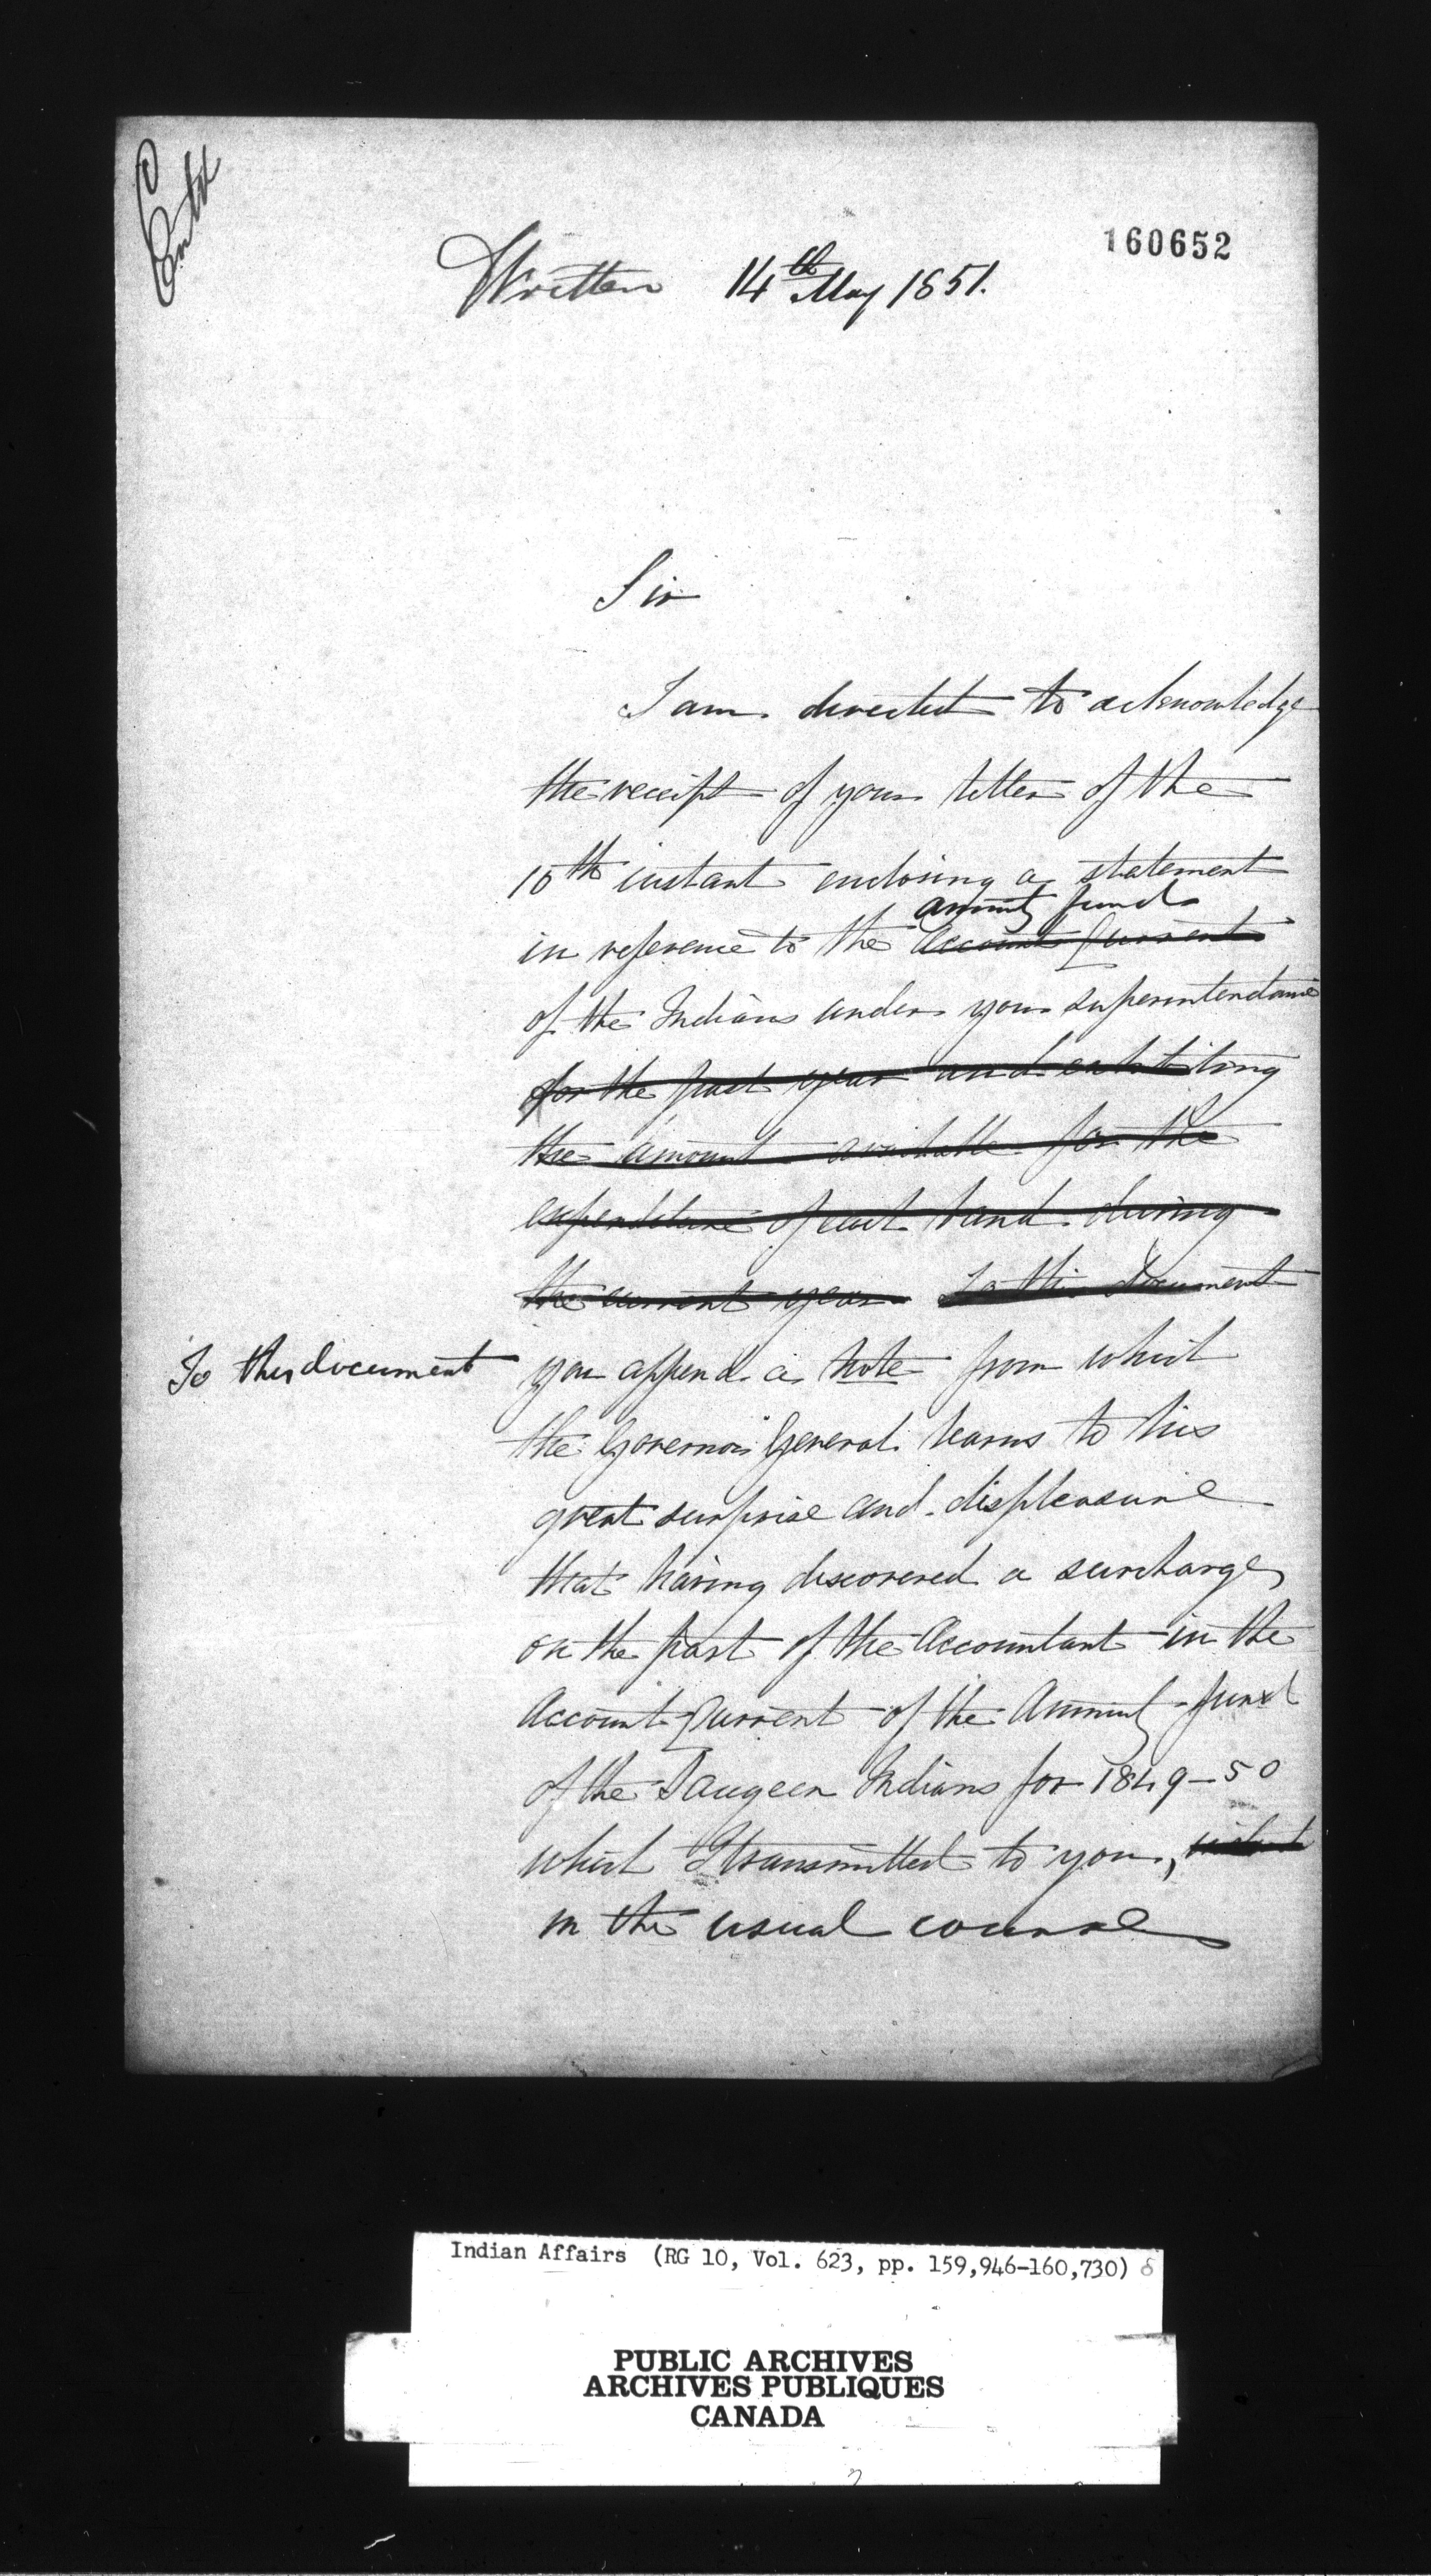 Entd
160652
Written 14th May 1851.
Sir
I am directed to acknowledge
the receipt of your letter of the
10th instant enclosing a statement
annuity funds
in reference to the Account Current
of the Indians under your superintendance
for the past year and exhibiting
the amount available for the
expenditure of each band during
the current year To this document
To this document you append a note from which
the Governor General learns to his
great surprise and displeasure
that having discovered a surcharge
on the part of the Accountant in the
Account Current of the Annuity fund
of the Saugeen Indians for 1849-50
which I transmitted to you,
in the usual course
Indian Affairs (RG 10, Vol. 623, pp. 159,946-160,730)
PUBLIC ARCHIVES
ARCHIVES PUBLIQUES
CANADA